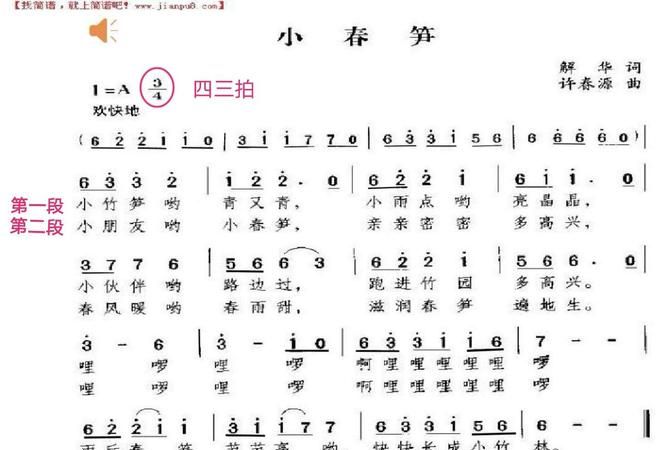 【找简谱，就上简谱吧！www.jianpu8.com】
小春笋
解华 词
许春源 曲
1=A 3/4 四三拍
欢快地
(6 2 2 1 1 0 3 1 1 7 7 0 6 3 3 1 5 6 6 6 6 6 0)
6 3 3 2 1 2 2 . 0 6 2 2 1 5 6 6 . 0
第一段 小竹笋哟 青又青， 小雨点哟 亮晶晶，
第二段 小朋友哟 小春笋， 亲亲密密 多高兴，
3 7 7 6 5 6 6 6 3 6 2 2 1 5 6 6 . 0
小伙伴哟 路边过， 跑进竹园 多高兴。
春风暖哟 春雨甜， 滋润春笋 遍地生。
3 - 6 3 - 1 0 6 3 3 1 1 6 7 -
哩 啰 哩 啰 啊哩哩哩哩啰
哩 啰 哩 啰 啊哩哩哩哩啰
6 2 2 1 1 3 3 1 1 7 0 6 3 3 1 5 6 6 -
快快长成小竹林。